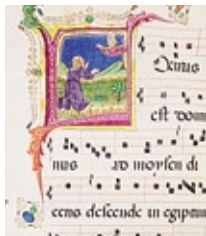 LOcutus
est domi
nus ad moysen di
cens descende in egiptum